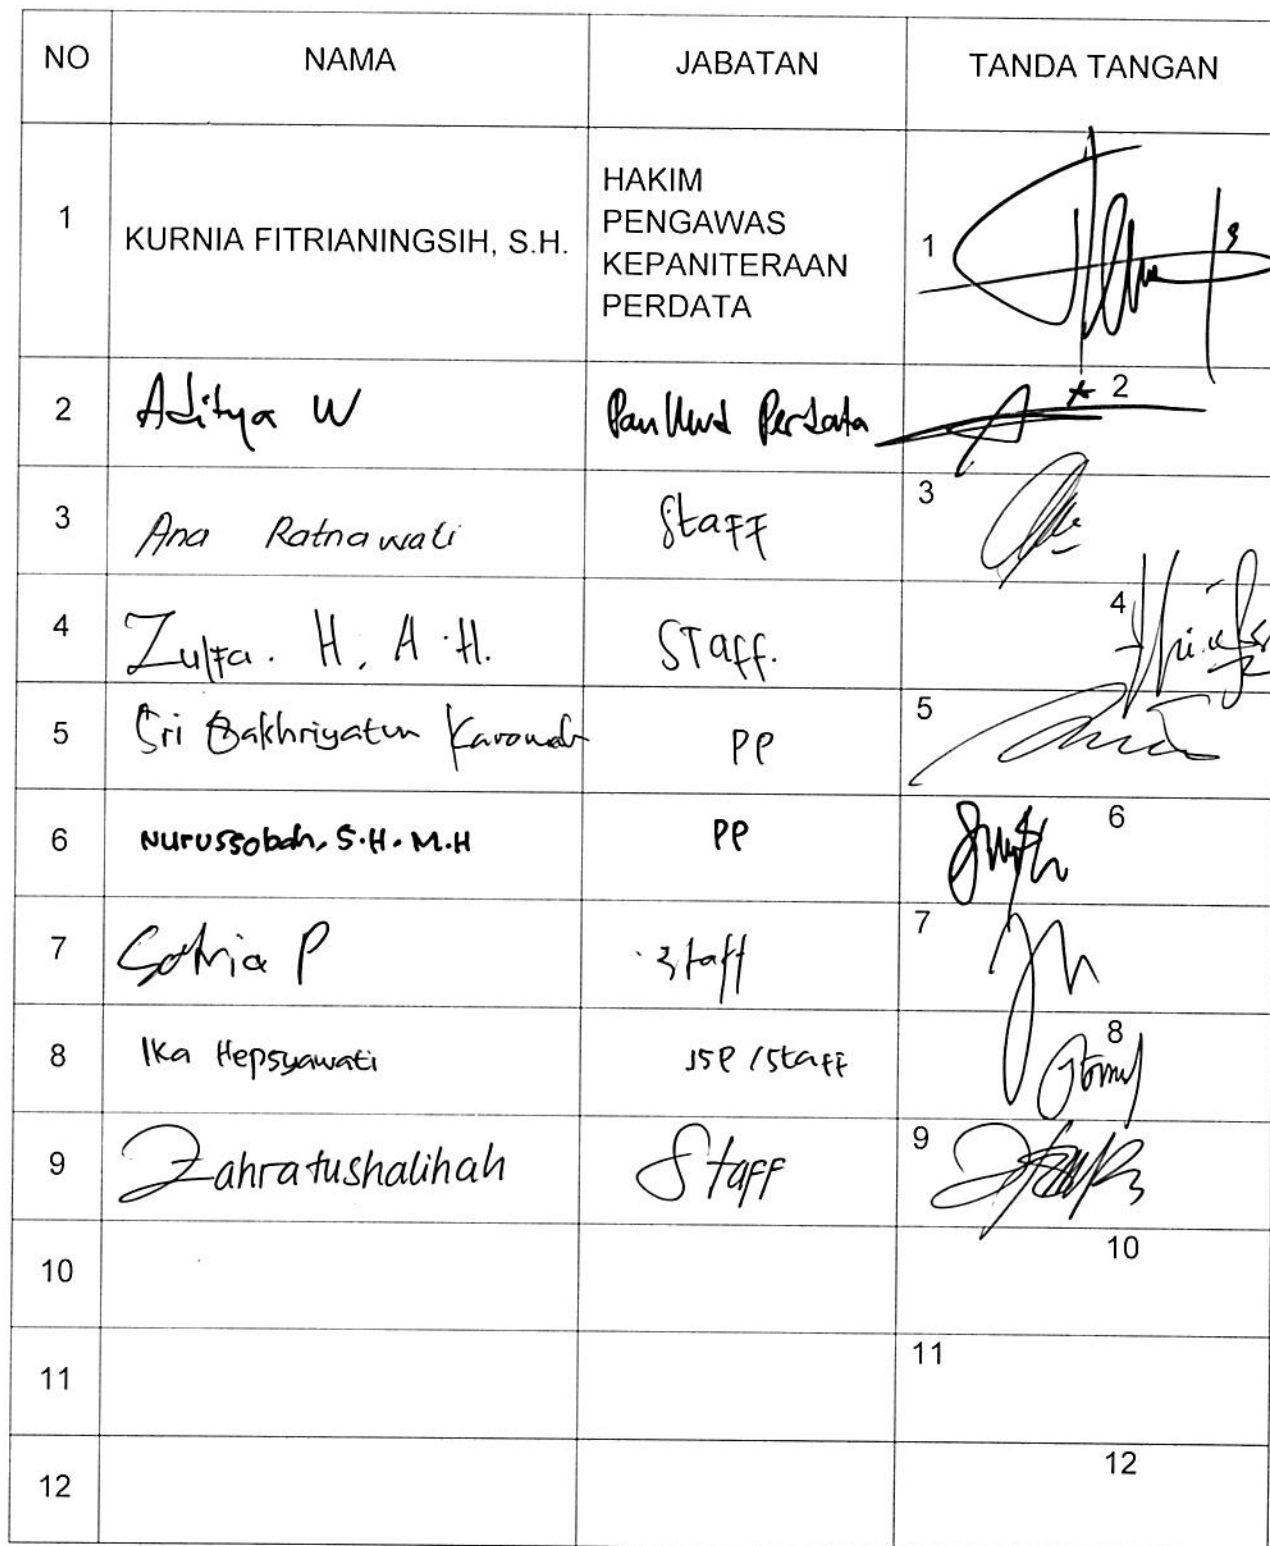 NO NAMA JABATAN TANDA TANGAN
1 KURNIA FITRIANINGSIH, S.H. HAKIM
PENGAWAS
KEPANITERAAN
PERDATA 1
2 Aditya W Perdata 2
3 Ana Ratnawati Staff 3
4 Zulfa. H. A. H. STaff. 4
5 Sri PP 5
6 Nurussobah, S.H. M.H PP 6
7 Satria P staff 7
8 Ika Hepsyawati JSP / Staff 8
9 Zahratushalihah Staff 9
10 10
11 11
12 12